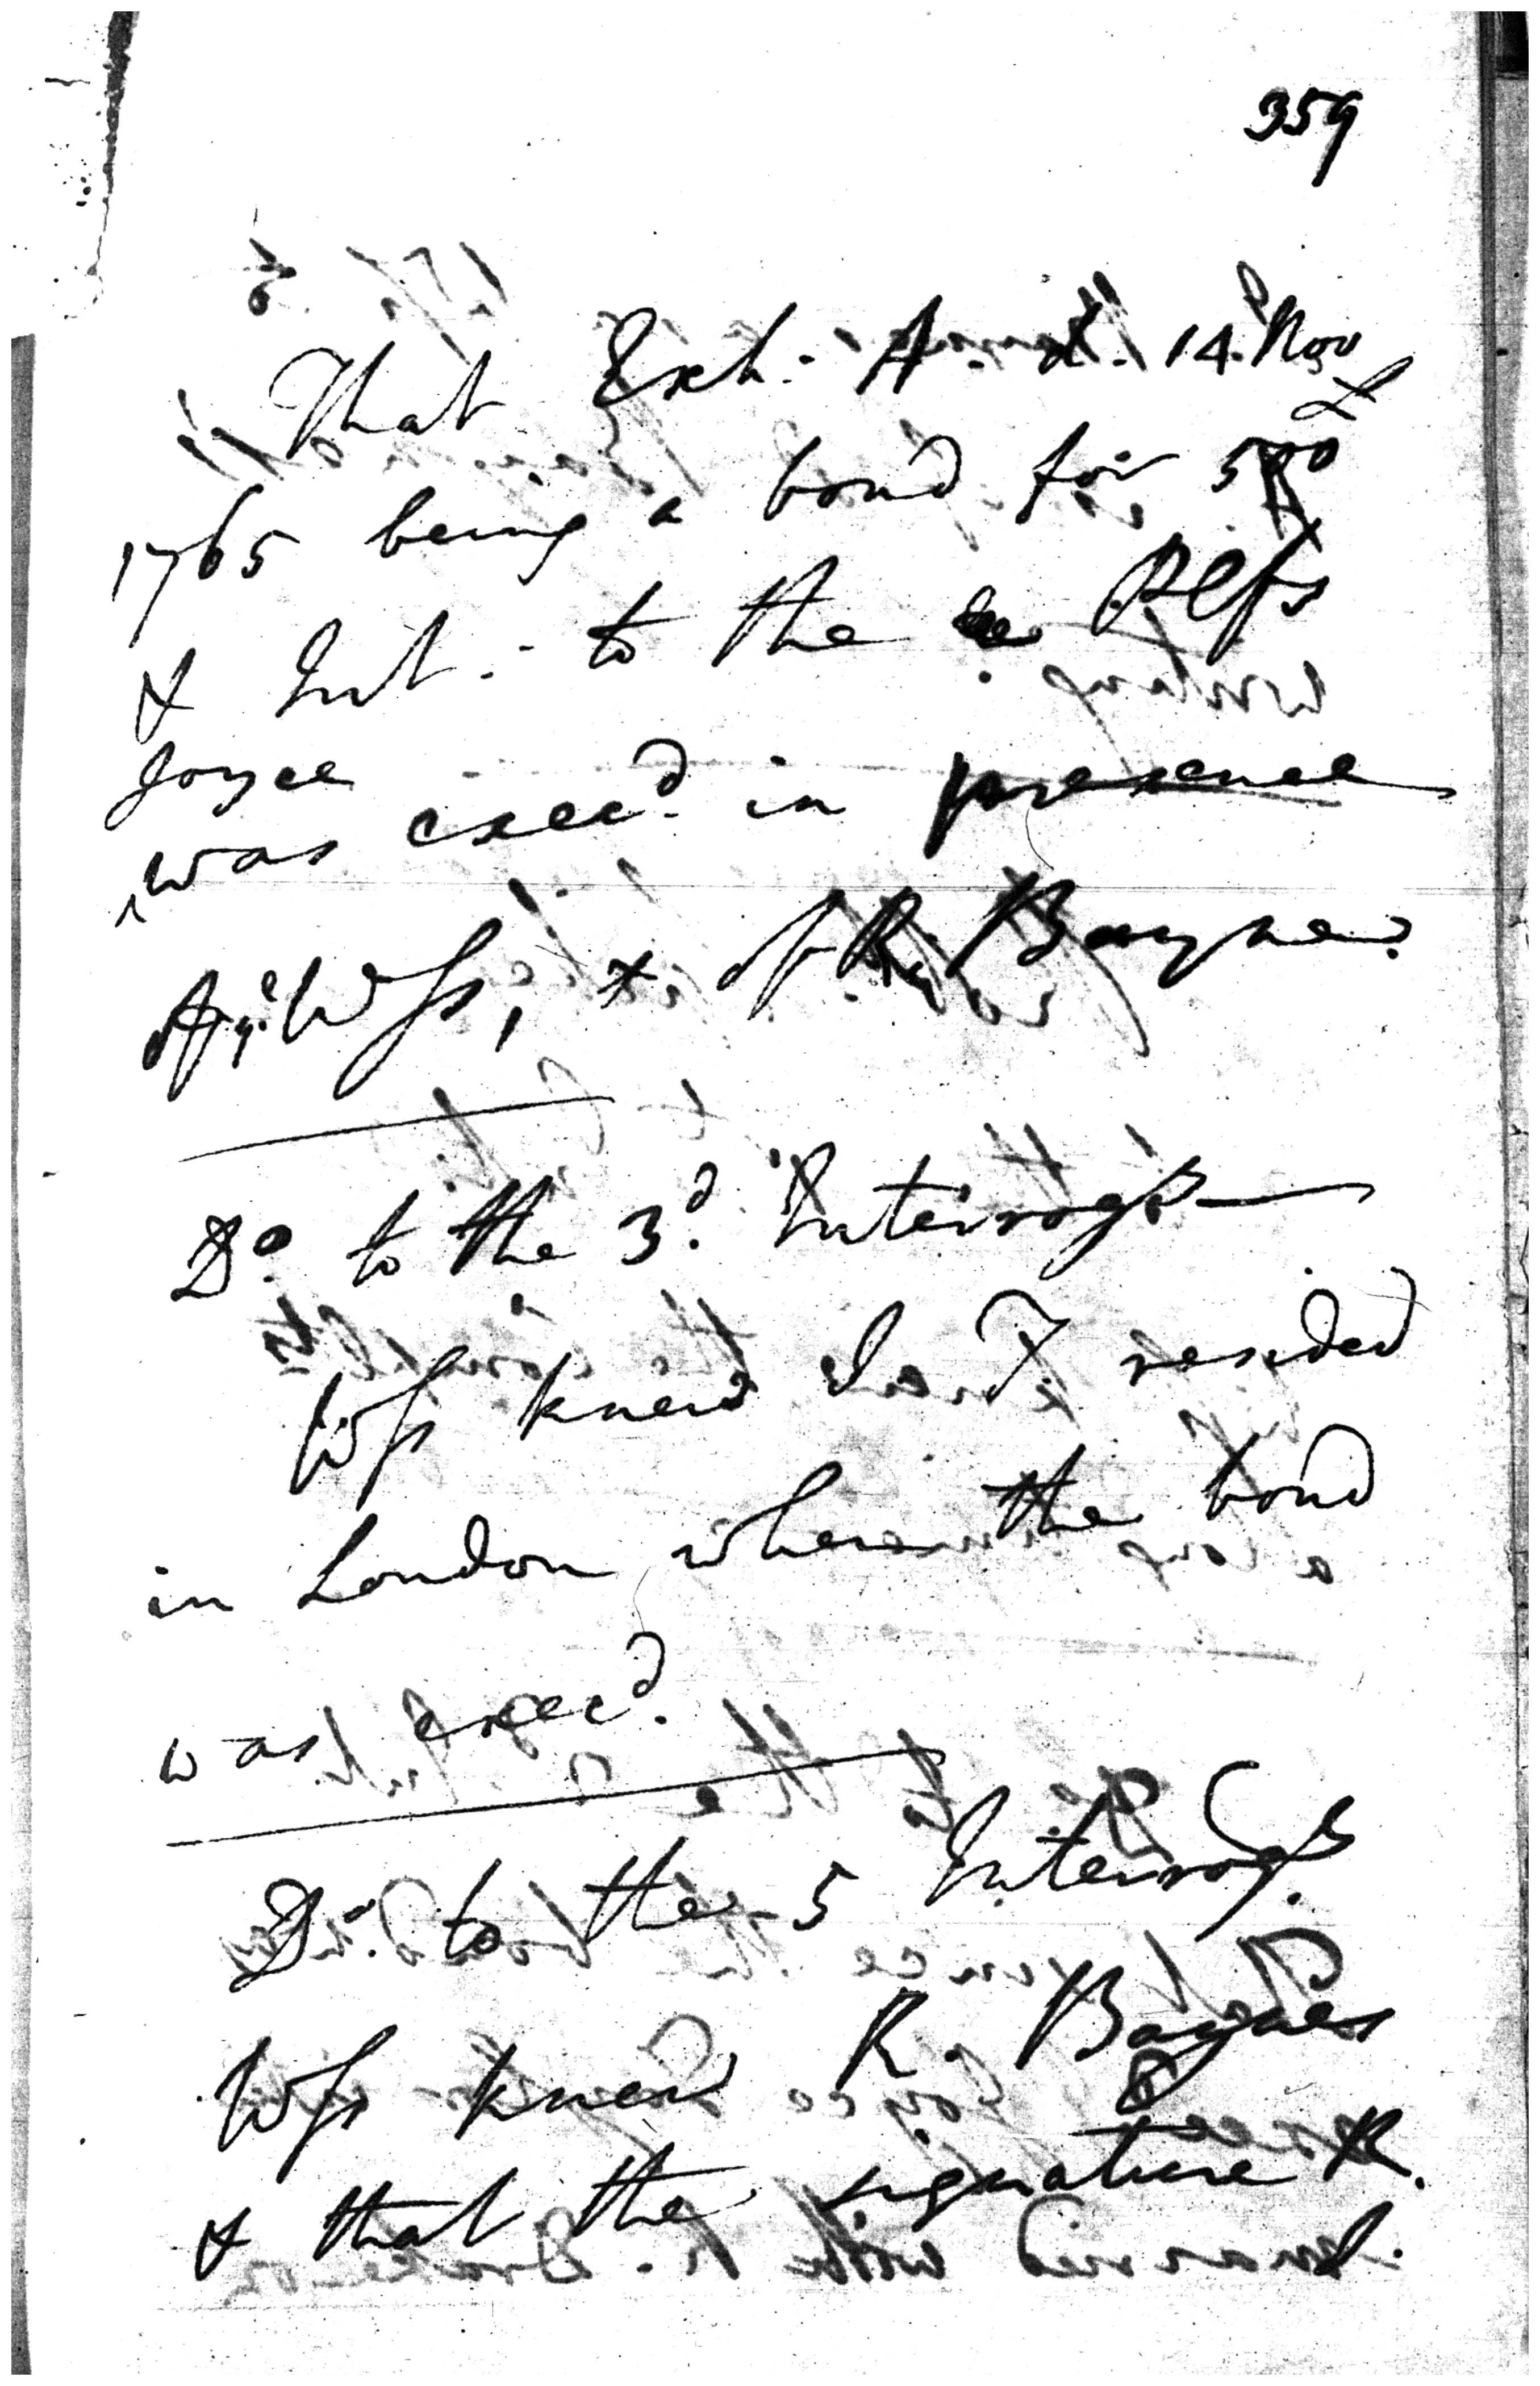 359
That Exh. A d. 14. Nov
1765 being a bond for 500£
& Int. to the Plfs
Joyce
was exec.d in presence
of ye Wss, & of R. Bayne
Do. to the 3.d Interrogs
Wss knew I. T. resided
in London where the bond
was exec.d
Do. to the 5 Interrogs
Wss knew R. Baynes
& that the signature R.